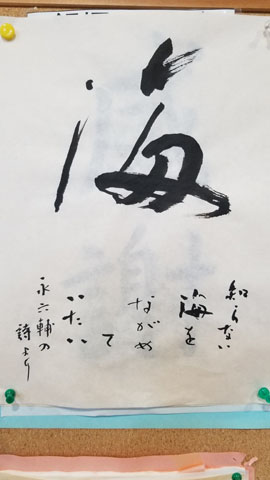 海
知らない
海を
ながめ
て
いたい
永六輔の
詩より